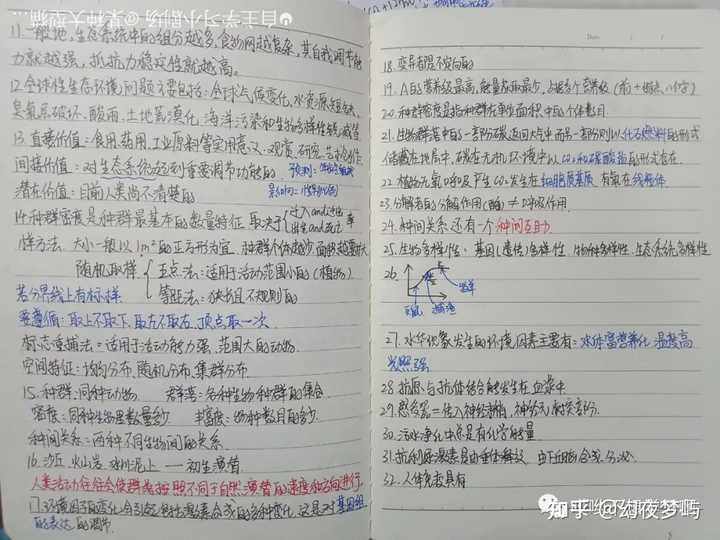 11.一般地,生态系统中的组分越多,食物网越复杂,其自我调节能
力就越强,抵抗力稳定性就越高。
12.全球性生态环境问题主要包括:全球气候变化,水资源短缺,
臭氧层破坏、酸雨,土地荒漠化,海洋污染和生物多样性锐减等
13.直接价值:食用药用,工业原料等实用意义、观赏,研究,艺术创作
间接价值:对生态系统起到重要调节功能的。
潜在价值:目前人类尚不清楚的
14.种群密度是种群最基本的数量特征 取决于
样方法。大小一般以1m²的正方形为宜。种群个体越少 面积越要大
随机取样 五点法:适用于活动范围小的(植物)
等距法:狭长且不规则的
若分界线上有标样
要遵循:取上不取下,取左不取右,顶点取一次
标志重捕法=适用于活动能力强、范围大的动物.
空间特征:均匀分布,随机分布,集群分布
15.种群:同种动物 群落:各种生物种群的集合
密度:同种生物是数量多少 丰富度:物种数目的多少.
种间关系:两种不同生物间的关系.
16.沙丘,火山岩,冰川泥上——初生演替
人类活动往往会使群落按照不同于自然演替的速度和方向进行.
17.环境因子的变化会引起包括激素合成的多种变化,这是对基因组
的表达的调节.
18.变异都是不定向的
19.A的营养级最高,能量获取最少
20.种群密度是指种群在单位面积中的个体数目.
21.生物群落中的一部分碳返回大气中而另一部分则以化石燃料的形式
储藏在地层中,碳在无机环境中以CO₂和碳酸盐的形式存在.
22.植物无氧呼吸产生CO₂发生在细胞质基质 有氧在线粒体
23.分解者的分解作用(酶)≠呼吸作用.
24.种间关系还有一个种间互助.
25.生物多样性:基因(遗传)多样性,物种多样性,生态系统多样性
26.
27.水华现象发生的环境因素主要有:水体富营养化 温度高
光照强
28.抗原与抗体结合能发生在血浆中
29.感受器=传入神经末梢
30.污水净化中总是有化学能量
31.抗利尿激素是由垂体释放 由下丘脑合成.分泌.
32.人体免疫具有
知乎 @幻夜梦屿